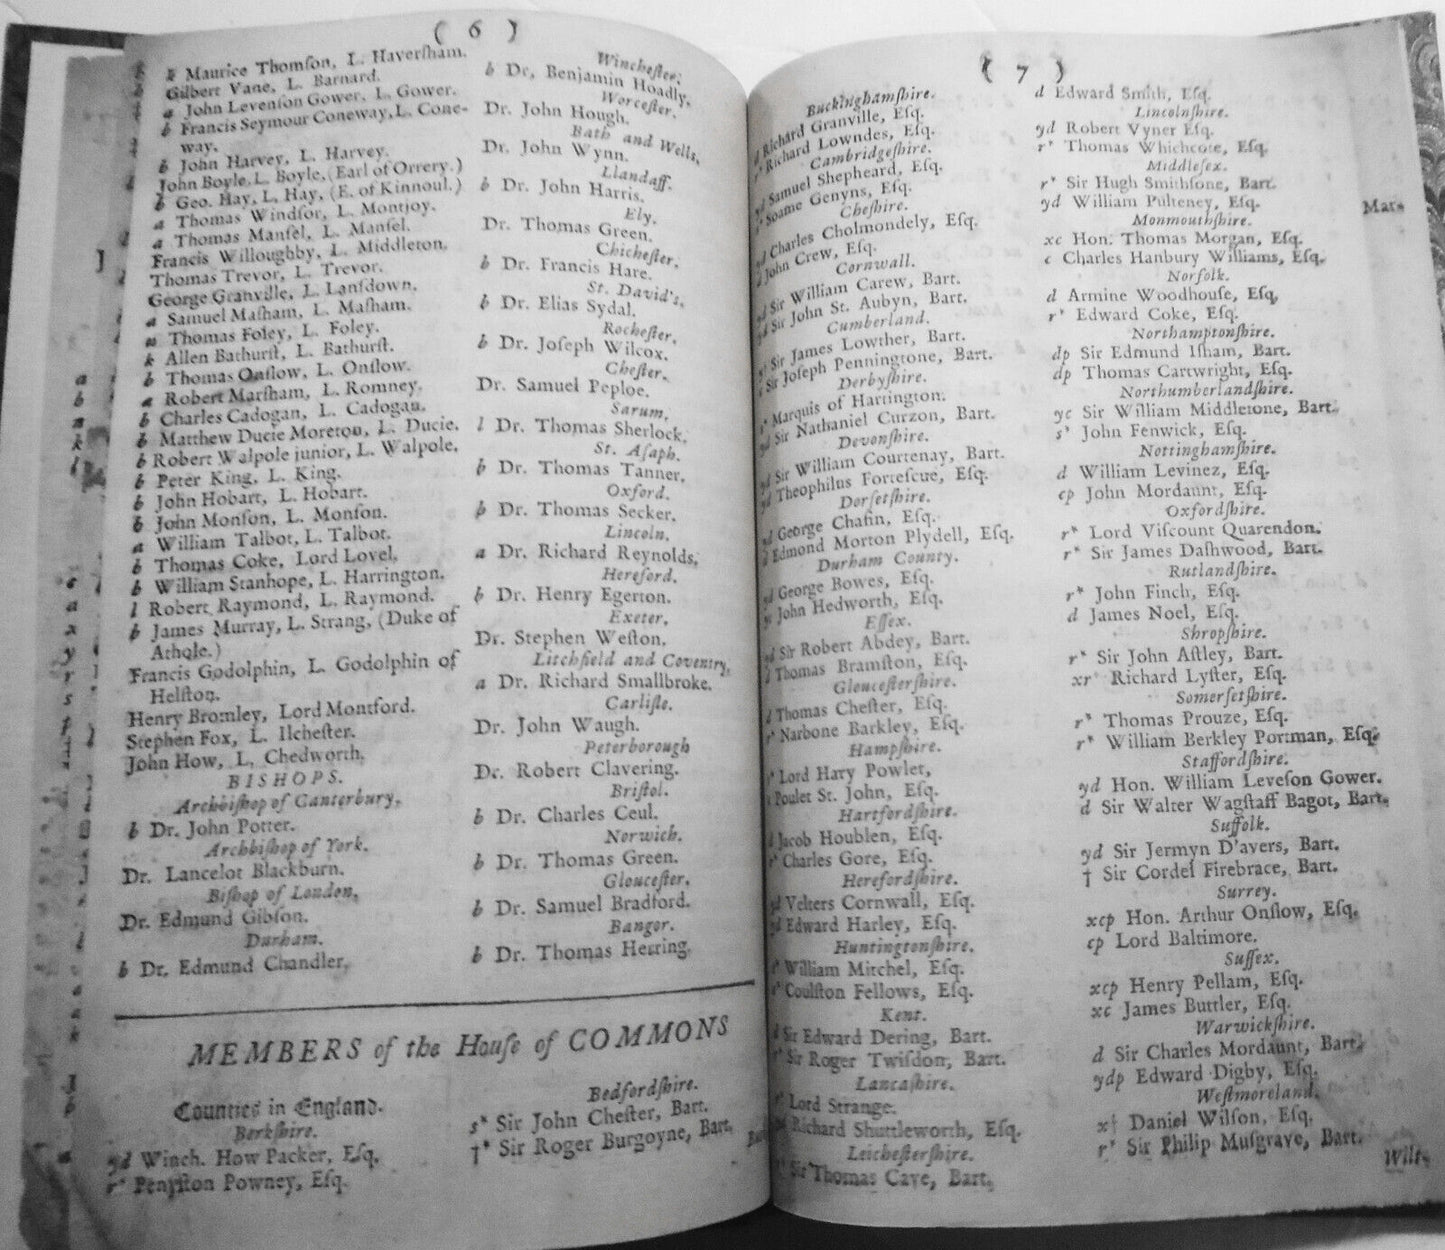 ( 6 )
b Maurice Thomſon, L. Haverſham.
Gilbert Vane, L. Barnard.
a John Levenſon Gower, L. Gower.
b Francis Seymour Coneway, L. Cone-
way.
b John Harvey, L. Harvey.
John Boyle, L. Boyle, (Earl of Orrery.)
b Geo. Hay, L. Hay, (E. of Kinnoul.)
a Thomas Windſor, L. Montjoy.
a Thomas Manſel, L. Manſel.
Francis Willoughby, L. Middleton.
Thomas Trevor, L. Trevor.
George Granville, L. Lanſdown.
a Samuel Maſham, L. Maſham.
Thomas Foley, L. Foley.
k Allen Bathurſt, L. Bathurſt.
b Thomas Onſlow, L. Onſlow.
a Robert Marſham, L. Romney.
b Charles Cadogan, L. Cadogan.
b Matthew Ducie Moreton, L. Ducie.
b Robert Walpole junior, L. Walpole.
b Peter King, L. King.
b John Hobart, L. Hobart.
b John Monſon, L. Monſon.
a William Talbot, L. Talbot.
b Thomas Coke, Lord Lovel.
b William Stanhope, L. Harrington.
l Robert Raymond, L. Raymond.
b James Murray, L. Strang, (Duke of
Athole.)
Francis Godolphin, L. Godolphin of
Helſton.
Henry Bromley, Lord Montford.
Stephen Fox, L. Ilcheſter.
John How, L. Chedworth.
BISHOPS.
Archbiſhop of Canterbury.
b Dr. John Potter.
Archbiſhop of York.
Dr. Lancelot Blackburn.
Biſhop of London.
Dr. Edmund Gibſon.
Durham.
b Dr. Edmund Chandler.
Wincheſter.
b Dr. Benjamin Hoadly.
Worceſter.
Dr. John Hough.
Bath and Wells.
Dr. John Wynn.
Llandaff.
b Dr. John Harris.
Ely.
Dr. Thomas Green.
Chicheſter.
b Dr. Francis Hare.
St. David's.
b Dr. Elias Sydal.
Rocheſter.
b Dr. Joſeph Wilcox.
Cheſter.
Dr. Samuel Peploe.
Sarum.
l Dr. Thomas Sherlock.
St. Aſaph.
b Dr. Thomas Tanner.
Oxford.
b Dr. Thomas Secker.
Lincoln.
a Dr. Richard Reynolds.
Hereford.
b Dr. Henry Egerton.
Exeter.
Dr. Stephen Weſton.
Litchfield and Coventry.
a Dr. Richard Smallbroke.
Carliſle.
Dr. John Waugh.
Peterborough
Dr. Robert Clavering.
Briſtol.
b Dr. Charles Ceul.
Norwich.
b Dr. Thomas Green.
Glouceſter.
b Dr. Samuel Bradford.
Bangor.
b Dr. Thomas Herring.
MEMBERS of the Houſe of COMMONS
Counties in England.
Berkſhire.
yd Winch. How Packer, Eſq.
r* Penyſton Powney, Eſq.
Bedfordſhire.
s* Sir John Cheſter, Bart.
†* Sir Roger Burgoyne, Bart.
( 7 )
Buckinghamſhire.
Richard Granville, Eſq.
Richard Lowndes, Eſq.
Cambridgeſhire.
Samuel Shepheard, Eſq.
Soame Genyns, Eſq.
Cheſhire.
Charles Cholmondely, Eſq.
John Crew, Eſq.
Cornwall.
Sir William Carew, Bart.
Sir John St. Aubyn, Bart.
Cumberland.
Sir James Lowther, Bart.
Sir Joſeph Penningtone, Bart.
Derbyſhire.
Marquis of Hartington.
Sir Nathaniel Curzon, Bart.
Devonſhire.
Sir William Courtenay, Bart.
Theophilus Forteſcue, Eſq.
Dorſetſhire.
George Chafin, Eſq.
Edmond Morton Plydell, Eſq.
Durham County.
George Bowes, Eſq.
John Hedworth, Eſq.
Eſſex.
Sir Robert Abdey, Bart.
Thomas Bramſton, Eſq.
Glouceſterſhire.
Thomas Cheſter, Eſq.
Narbone Barkley, Eſq.
Hampſhire.
Lord Hary Powlet,
Poulet St. John, Eſq.
Hartfordſhire.
Jacob Houblen, Eſq.
Charles Gore, Eſq.
Herefordſhire.
Velters Cornwall, Eſq.
Edward Harley, Eſq.
Huntingtonſhire.
William Mitchel, Eſq.
Coulſton Fellows, Eſq.
Kent.
Sir Edward Dering, Bart.
Sir Roger Twiſdon, Bart.
Lancaſhire.
Lord Strange.
Richard Shuttleworth, Eſq.
Leicheſterſhire.
Sir Thomas Cave, Bart.
d Edward Smith, Eſq.
Lincolnſhire.
yd Robert Vyner Eſq.
r* Thomas Whichcote, Eſq.
Middleſex.
r* Sir Hugh Smithſone, Bart.
yd William Pulteney, Eſq.
Monmouthſhire.
xc Hon. Thomas Morgan, Eſq.
c Charles Hanbury Williams, Eſq.
Norfolk.
d Armine Woodhouſe, Eſq.
r* Edward Coke, Eſq.
Northamptonſhire.
dp Sir Edmund Iſham, Bart.
dp Thomas Cartwright, Eſq.
Northumberlandſhire.
yc Sir William Middletone, Bart.
s* John Fenwick, Eſq.
Nottinghamſhire.
d William Levinez, Eſq.
cp John Mordaunt, Eſq.
Oxfordſhire.
r* Lord Viſcount Quarendon.
r* Sir James Daſhwood, Bart.
Rutlandſhire.
r* John Finch, Eſq.
d James Noel, Eſq.
Shropſhire.
r* Sir John Aſtley, Bart.
xr* Richard Lyſter, Eſq.
Somerſetſhire.
r* Thomas Prouze, Eſq.
r* William Berkley Portman, Eſq.
Staffordſhire.
yd Hon. William Leveſon Gower.
d Sir Walter Wagſtaff Bagot, Bart.
Suffolk.
yd Sir Jermyn D'avers, Bart.
† Sir Cordel Firebrace, Bart.
Surrey.
xcp Hon. Arthur Onſlow, Eſq.
cp Lord Baltimore.
Suſſex.
xcp Henry Pellam, Eſq.
xc James Buttler, Eſq.
Warwickſhire.
d Sir Charles Mordaunt, Bart.
ydp Edward Digby, Eſq.
Weſtmoreland.
x† Daniel Wilſon, Eſq.
r* Sir Philip Muſgrave, Bart.
Wilt-